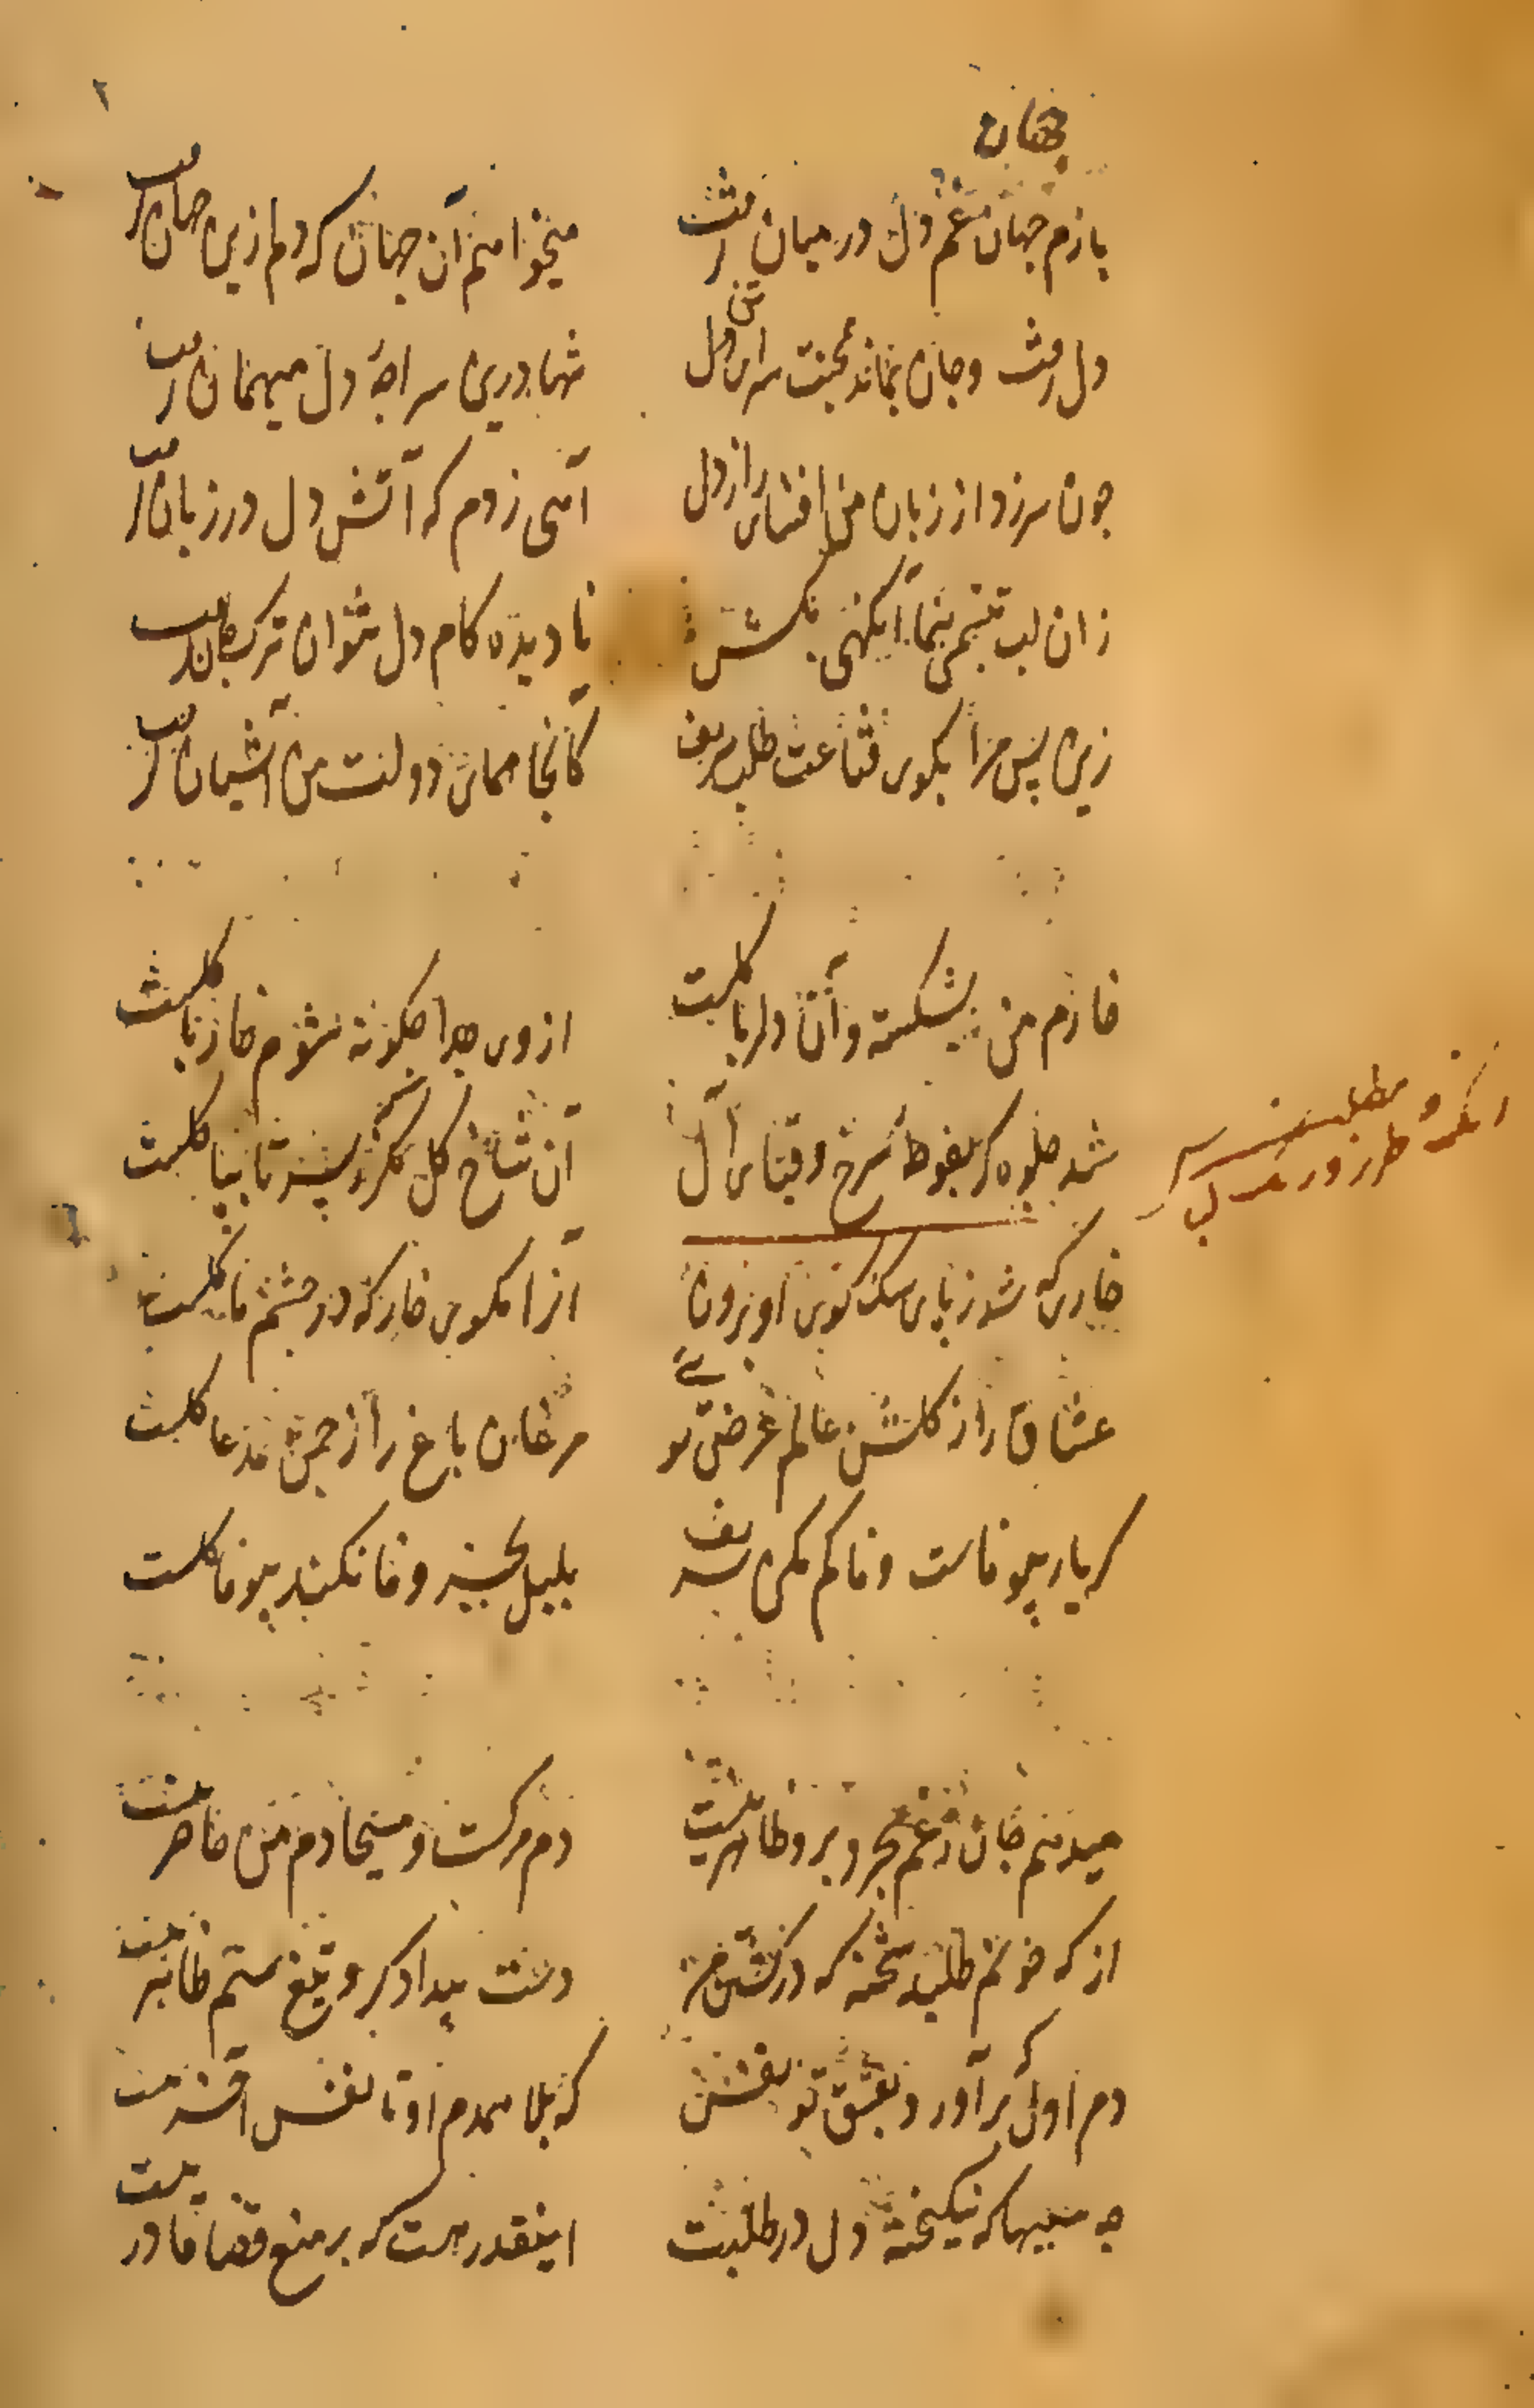 جهان
بازم جهان غم دل در میان گرفت
میخواهم آن جهان که دلم زین جهان گرفت
دل رفت و جان نماند محبت سرای دل
تنها درین سراچه دل میهمان گرفت
چون سر زد از زبان من افشای راز دل
آهی زدم که آتش دل در زبان گرفت
زان لب تبسمی بنما آنگهی بکش
نادیده کام دل نتوان ترک جان گرفت
زین پس مرا بکوی قناعت طلب شریف
کانجا همای دولت من آشیان گرفت
خارم من شکسته و آن دلربا گلست
از وی جدا چگونه شوم خار با گلست
شد جلوه گر بفوطه سرخ و قبای آل
آن شاخ گل نگر ز سر تا بپا گلست
خاری که شد ز پای سگ کوی او برون
آنرا مگوی خار که در چشم ما گلست
عشاق را ز گلشن عالم غرض تویی
مرغان باغ را ز چمن مدعا گلست
گر یار بیوفاست وفا کم مکن شریف
بلبل بجز وفا نکند بیوفا گلست
میدهم جان ز غم هجر و برو ظاهر نیست
دم مرگست و مسیحا دم من حاضر نیست
از که خونم طلبد شحنه که در کشتن من
دست بیدادگر و تیغ ستم ظاهر نیست
دم اول که برآورد بعشق تو نفس
که بلا همدم او تا نفس آخر نیست
چه سعیها که نیکیخته دل در طلبت
اینقدر هست که بر منع قضا قادر نیست